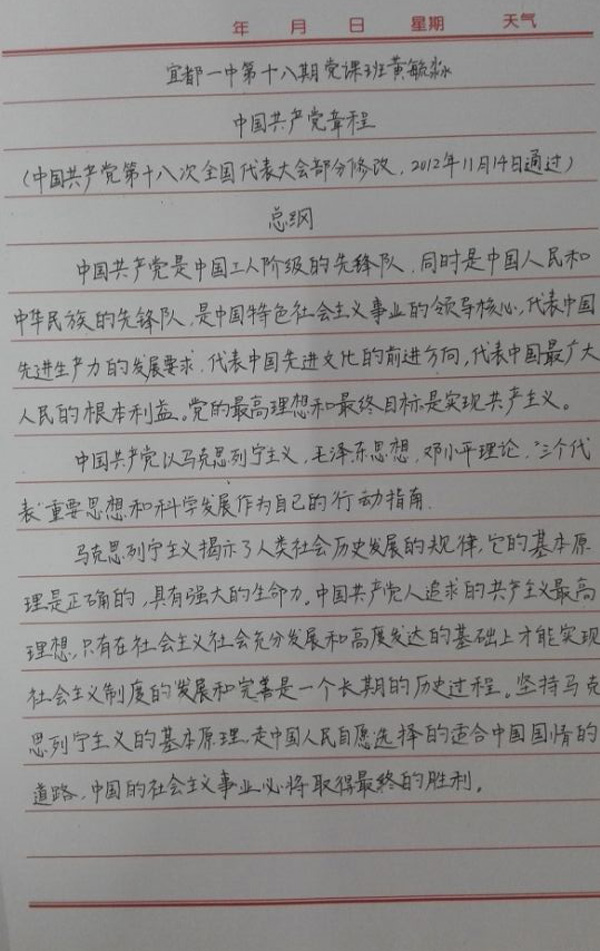 年 月 日 星期 天气
宜都一中第十八期党课班黄毓淼
中国共产党章程
(中国共产党第十八次全国代表大会部分修改，2012年11月14日通过)
总纲
中国共产党是中国工人阶级的先锋队，同时是中国人民和
中华民族的先锋队，是中国特色社会主义事业的领导核心，代表中国
先进生产力的发展要求，代表中国先进文化的前进方向，代表中国最广大
人民的根本利益。党的最高理想和最终目标是实现共产主义。
中国共产党以马克思列宁主义，毛泽东思想，邓小平理论，"三个代
表"重要思想和科学发展作为自己的行动指南.
马克思列宁主义揭示了人类社会历史发展的规律，它的基本原
理是正确的，具有强大的生命力。中国共产党人追求的共产主义最高
理想，只有在社会主义社会充分发展和高度发达的基础上才能实现
社会主义制度的发展和完善是一个长期的历史过程。坚持马克
思列宁主义的基本原理，走中国人民自愿选择的适合中国国情的
道路，中国的社会主义事业必将取得最终的胜利。